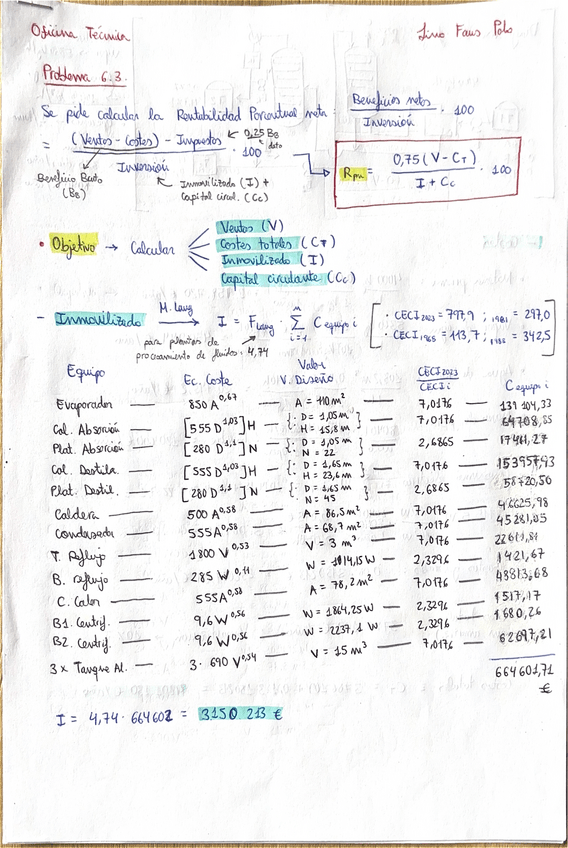 Oficina Técnica
Lino Faus Polo
Problema 6.3.
Se pide calcular la Rentabilidad Porcentual neta: Beneficios netos / Inversión · 100
= (Ventas - Costes) - Impuestos / Inversión · 100
← 0,25 BB
dato
Beneficio Bruto (BB)
Inmovilizado (I) + Capital circul. (Cc)
Rpn = 0,75 (V - CT) / I + Cc · 100
• Objetivo → Calcular
Ventas (V)
Costes totales (CT)
Inmovilizado (I)
Capital circulante (Cc)
- Inmovilizado M. Lang → I = FLang · Σ i=1 n C equipo i
para plantas de procesamiento de fluidos · 4,74
· CECI 2023 = 797,9 ; 1981 = 297,0
· CECI 1965 = 113,7 ; 1986 = 342,5
Equipo Ec. Coste Valor V. Diseño CECI 2023 / CECI i C equipo i
Evaporador — 850 A^0,67 — A = 110 m² — 7,0176 — 139 104,33
Col. Absorción — [555 D^1,03] H — { · D = 1,05 m · H = 15,8 m } — 7,0176 — 64708,85
Plat. Absorción — [280 D^1,1] N — { · D = 1,05 m N = 22 } — 2,6865 — 17461,27
Col. Destila. — [555 D^1,03] H — { · D = 1,65 m · H = 23,6 m } — 7,0176 — 153957,93
Plat. Destil. — [280 D^1,1] N — { · D = 1,65 m N = 45 } — 2,6865 — 58720,50
Caldera — 500 A^0,58 — A = 86,5 m² — 7,0176 — 46625,98
Condensador — 555 A^0,58 — A = 68,7 m² — 7,0176 — 45281,05
T. Reflujo — 1800 V^0,53 — V = 3 m³ — 7,0176 — 22611,81
B. reflujo — 285 W^0,11 — W = 1014,15 W — 2,3296 — 1421,67
C. Calor — 555 A^0,58 — A = 78,2 m² — 7,0176 — 48813,68
B1. Centríf. — 9,6 W^0,56 — W = 1864,25 W — 2,3296 — 1517,17
B2. Centríf. — 9,6 W^0,56 — W = 2237,1 W — 2,3296 — 1680,26
3 x Tanque Al. — 3 · 690 V^0,54 — V = 15 m³ — 7,0176 — 62697,21
664601,71 €
I = 4,74 · 664602 = 3150 213 €